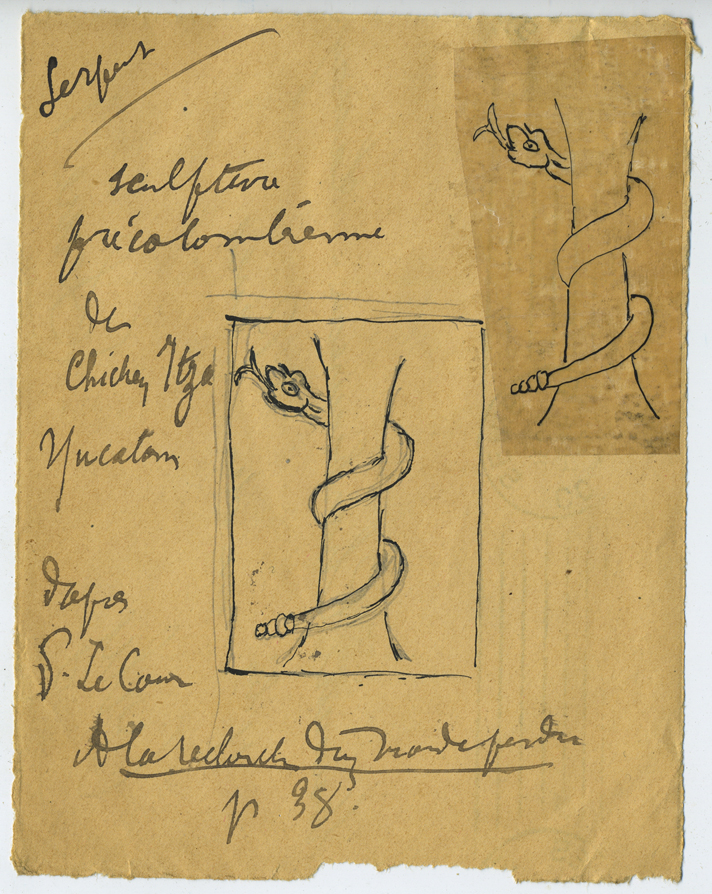 Serpent
sculpture
précolombienne
de
Chichen Itza
Yucatan
d'après
P. Le Cour
A la recherche d'un monde perdu
p 38.